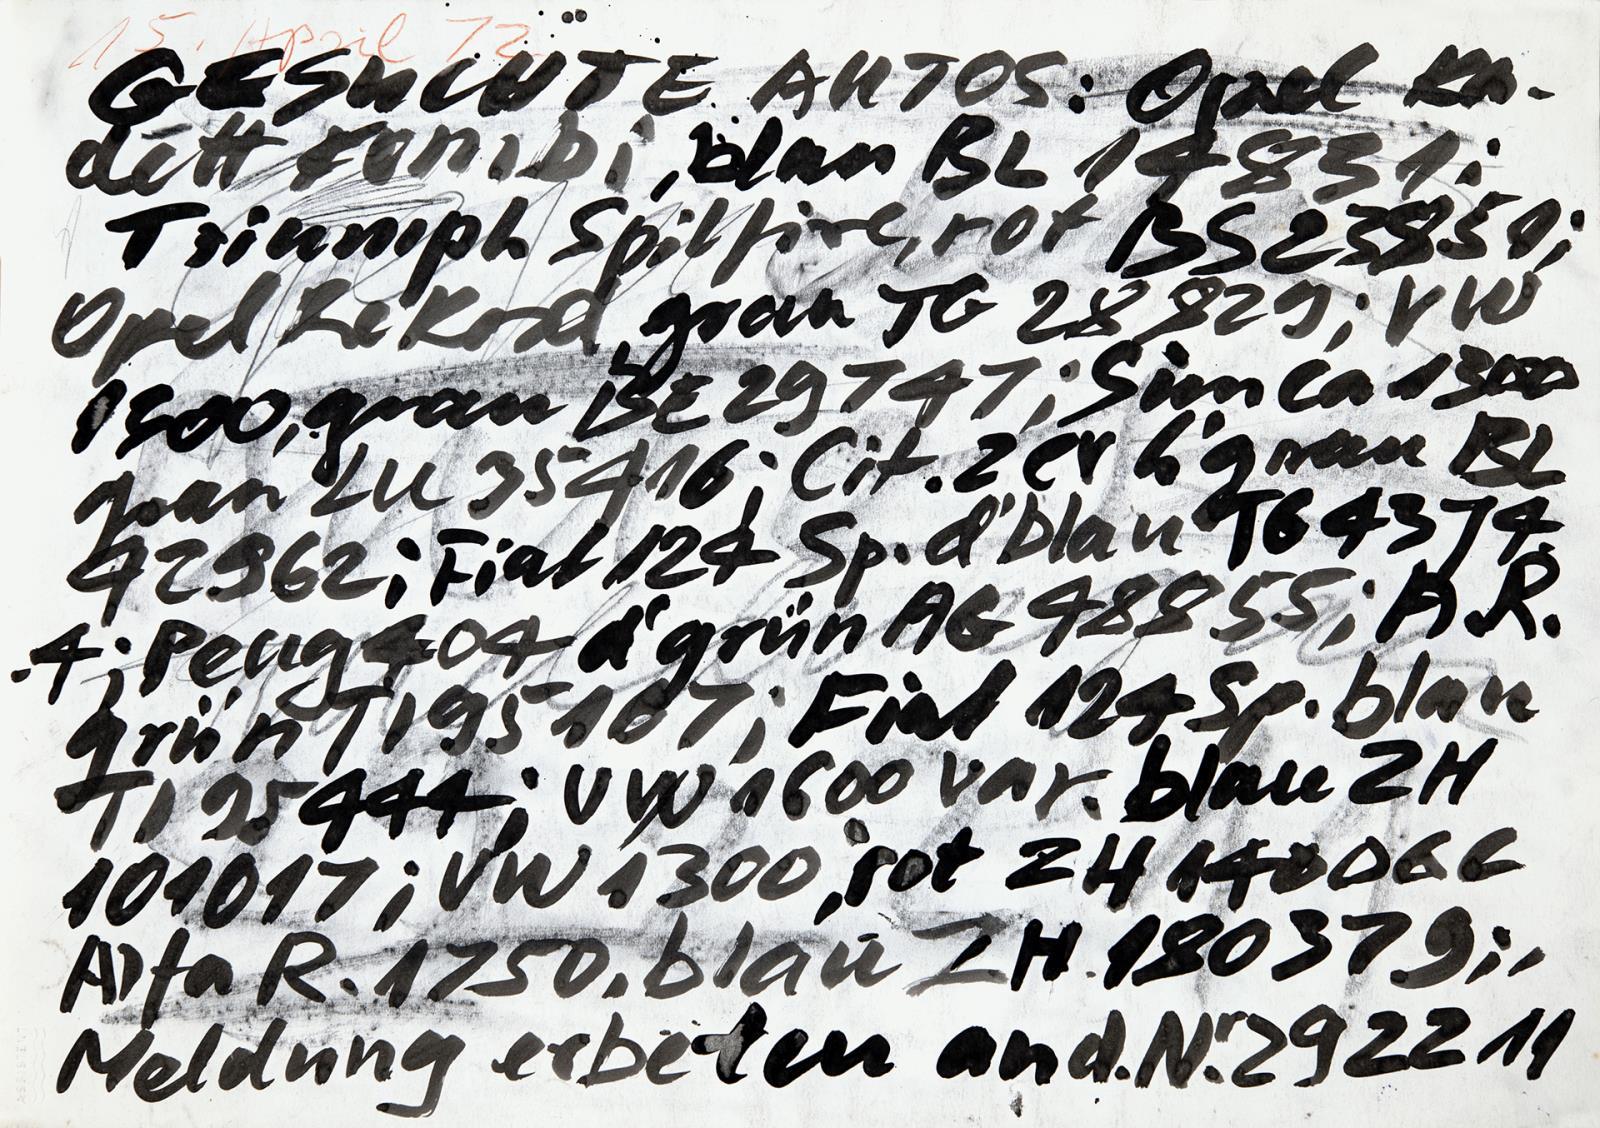 15. April 72
GESUCHTE AUTOS: Opel Ka-
dett Kombi, blau BL 14831;
Triumph Spitfire, rot BS 23851;
Opel Rekord, grau TG 28829; VW
1500, grau BE 29747; Simca 1300
grau LU 35416; Cit. 2 cv h'grau BL
42962; Fiat 124 Sp. d'blau TG 4374
.4; Peug 404 d'grün AG 48855; A.R.
grün TI 95167; Fiat 124 Sp. blau
TI 95444; VW 1600 var. blau ZH
101017; VW 1300, rot ZH 140066
Alfa R. 1750, blau ZH 180379;,
Meldung erbeten an d. Nr 292211